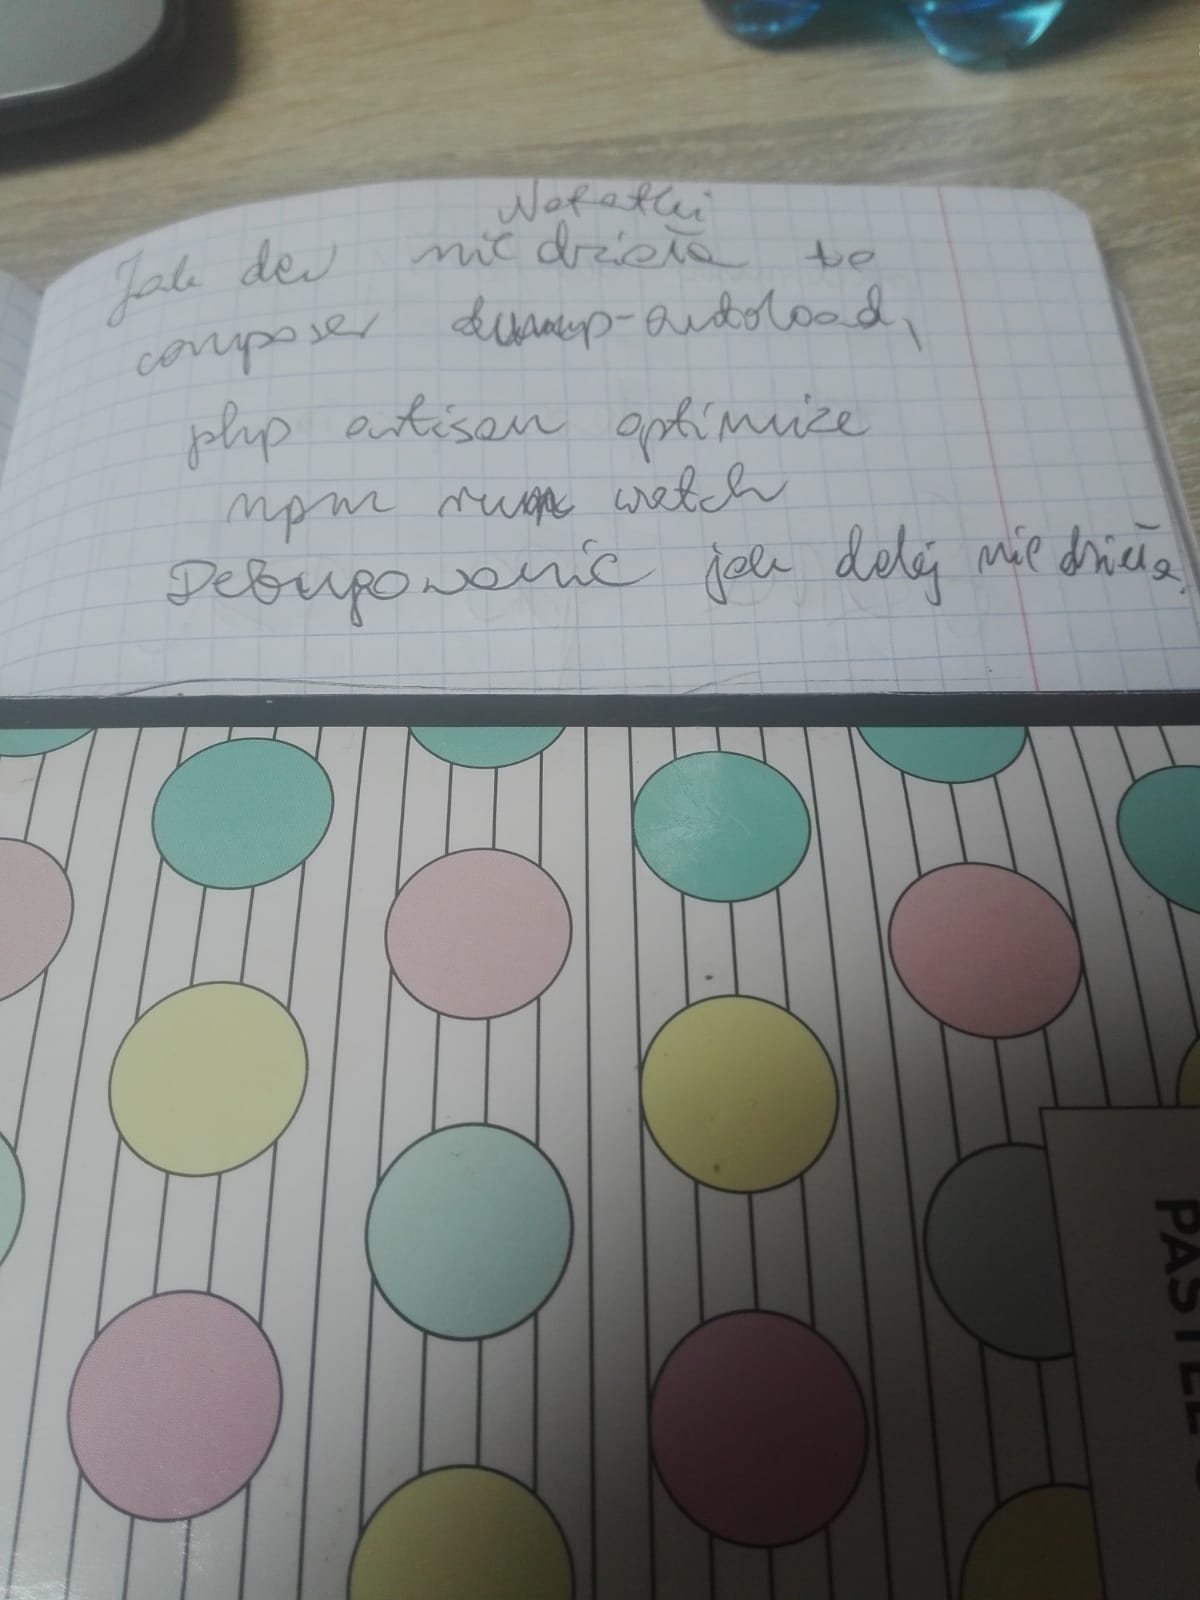 Notatki
Jak dev nie dziala to
composer dump-autoload,
php artisan optimize
npm run watch
Debugowanie jak dalej nie dziala.
PASTEL